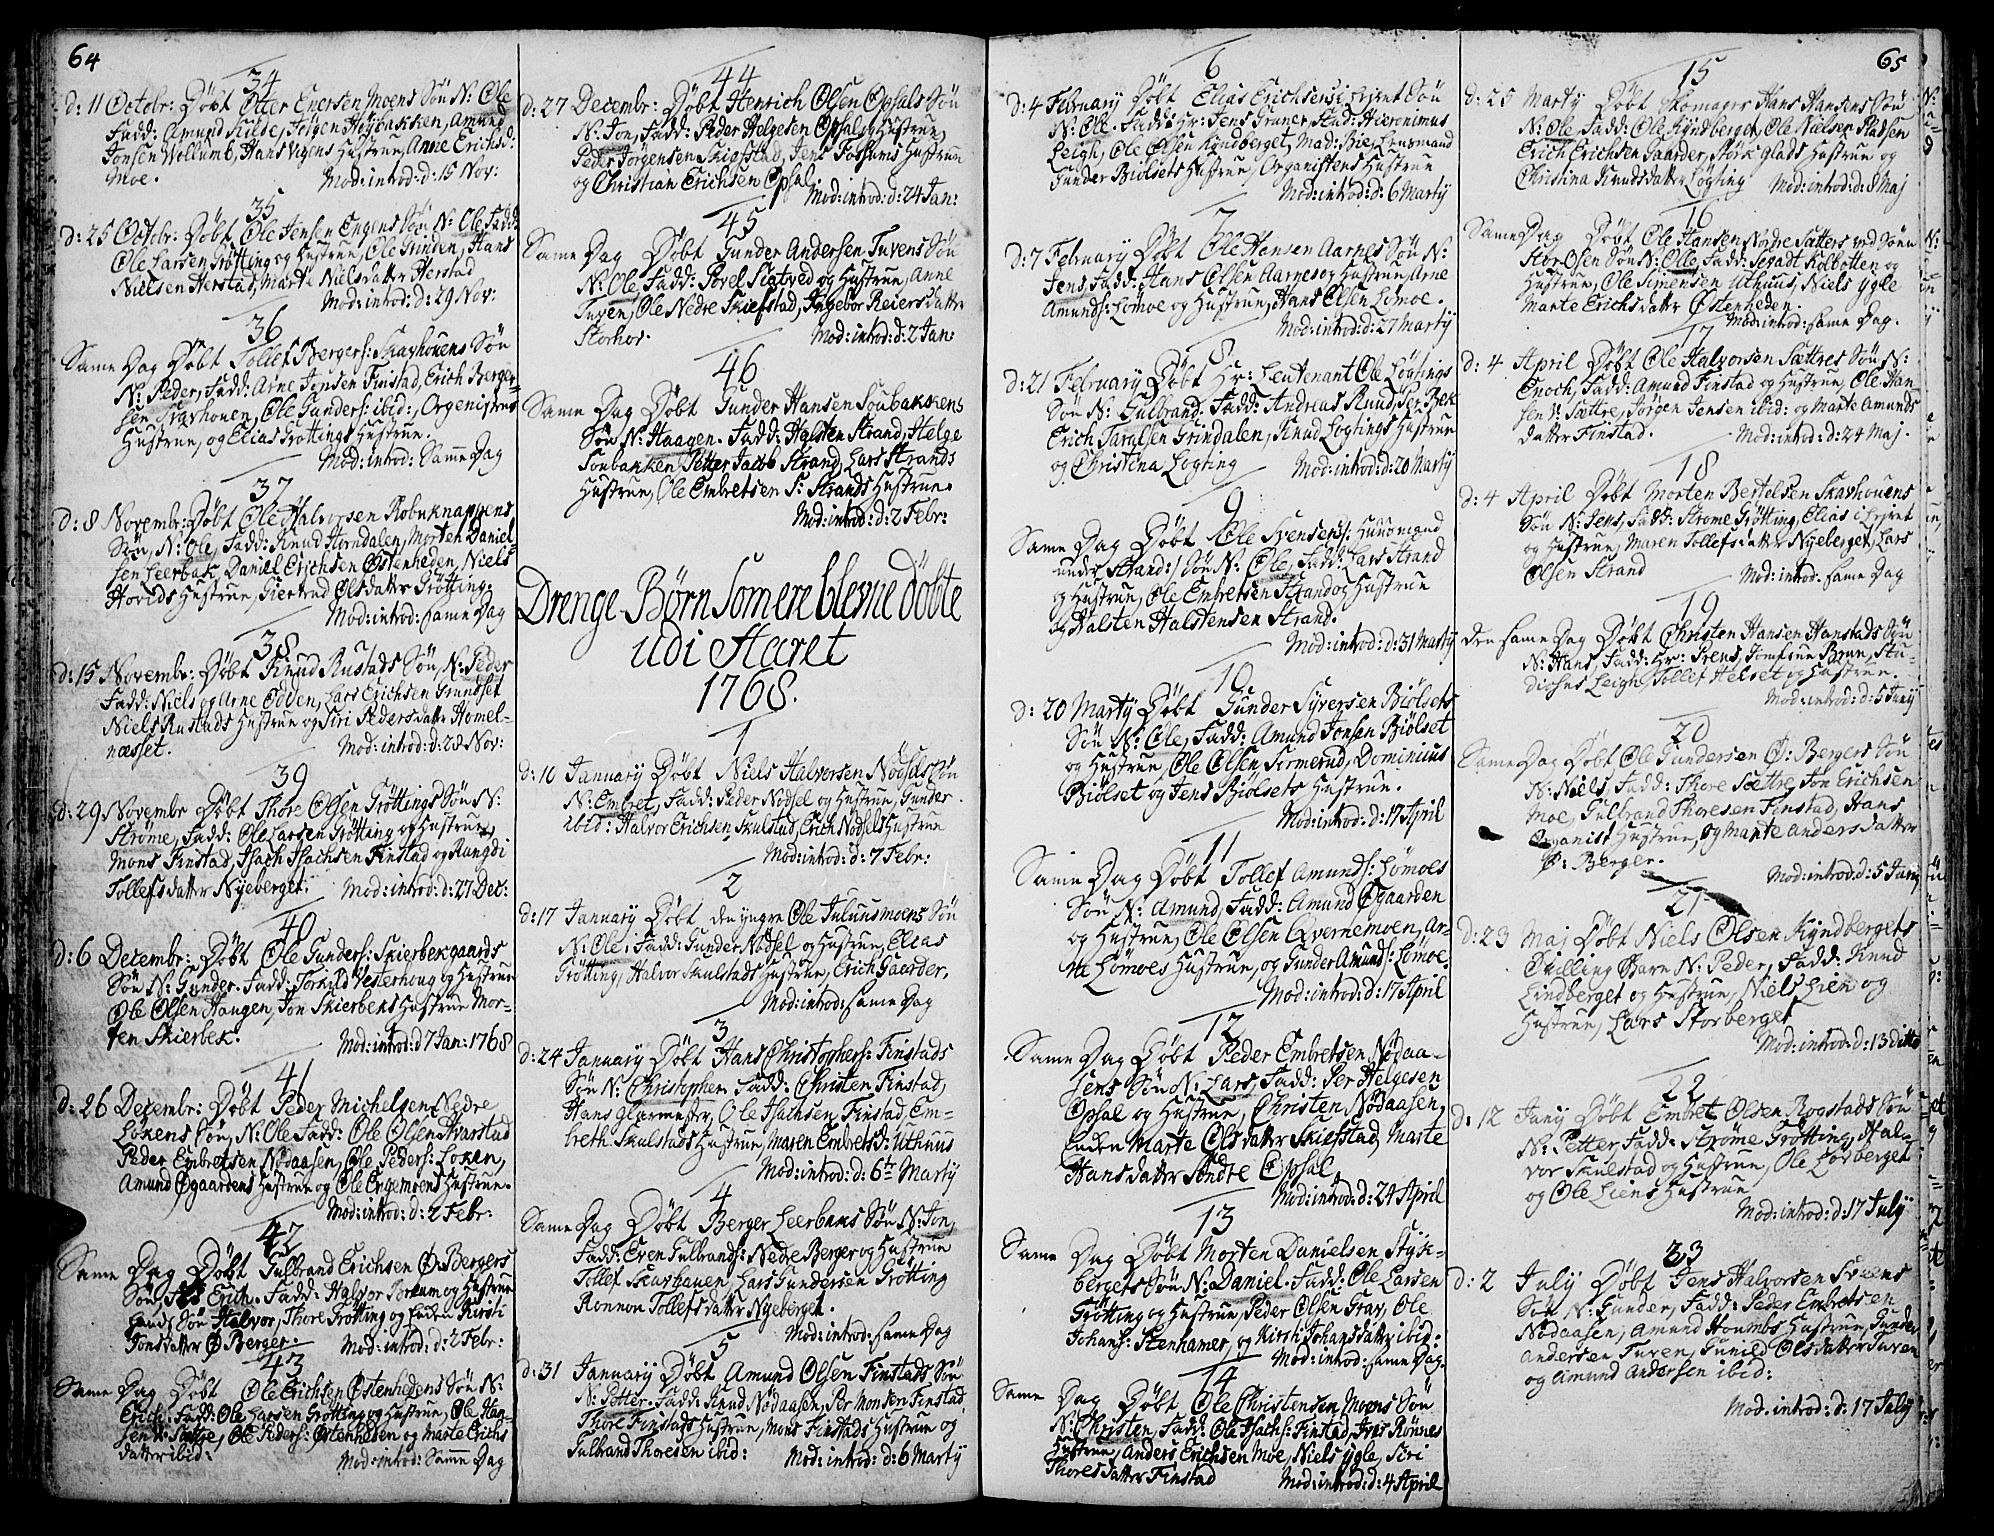 64
34
d: 11 Octobr: Döbt Otter Enersen Moens Sön N: Ole
Fadd: Amund Kilde, Jörgen Høybakken, Amund
Jonsen Wollumb, Hans Vigens Hustrue, Anne Erichsd:
Moe. Mod: introd: d: 15 Nov:
35
d: 25 Octobr: Döbt Ole Jensen Engens Sön N: Ole Fadd:
Ole Larsen Grötting og Hustrue, Ole Grinden, Hans
Nielsen Herstad, Marte Nielsdatter Herstad
Mod: introd: d: 29 Nov:
36
Same Dag Döbt Tollef Bergers: Skavhouens Sön
N: Peder, Fadd: Arne Jonsen Finstad, Erich Berger-
sen Skavhouen, Ole Gunders: ibid:, Orgenistens
Hustrue, og Elias Grøttings Hustrue.
Mod: introd: Same Dag
37
d: 8 Novembr: Döbt Ole Halvorsen Robuknappens
Sön, N: Ole, Fadd: Knud Horndalen, Morten Daniel-
sen Leerbak, Daniel Erichsen Østenheden, Niels
Hovids Hustrue, Giertrud Olsdatter Grötting.
Mod: introd: same Dag
38
d: 15 Novembr: Döbt Knud Rustads Sön, N: Peder
Fadd: Niels og Arne Edden, Lars Erichsen Grundset
Niels Rustads Hustrue og Siri Pedersdatter Homel-
næsset. Mod: introd: d: 28 Nov:
39
d: 29 Novembr Döbt Thore Olsen Gröttings Sön N:
Ströme, Fadd: Ole Larsen Grötting og Hustrue,
Mons Finstad, Isach Isachsen Finstad og Rangdi
Tollefsdatter Nyeberget. Mod: introd: d: 27 Dec:
40
d: 6 Decembr: Döbt Ole Gunders: Skierbekgaards
Sön N: Gunder. Fadd: Torkild Vesterhoug og Hustrue
Ole Olsen Haugen, Jon Skierbeks Hustrue Mor-
ten Skierbek. Mod: introd: d 7 Jan: 1768
41
d: 26 Decembr: Döbt Peder Michelsen Nedre
Løkens Sön, N: Ole Fadd: Ole Olsen Kvarstad
Peder Embretsen Nödaasen, Ole Peders: Loken,
Amund Øgaardens Hustrue og Ole Engemoens Hustrue.
Mod: introd: d: 2 Febr:
42
Same Dag Döbt Gulbrand Erichsen Ø: Bergers
Sön, N: Erich. Fadd: Halvor Berum og Hustrue
hands Sön Halvor, Thore Grötting og Enken Kirsti
Jonsdatter Ø Berger. Mod: introd: d: 2 Febr:
43
Same Dag Döbt Ole Erichsen Østenhedens Sön N:
Erich: Fadd: Ole Larsen Grötting og Hustrue, Ole Han-
sen Sættre, Ole Peders: Østenheden og Marte Erichs
datter ibid: Mod: introd: Same Dag
44
d: 27 Decembr: Döbt Henrich Olsen Opsals Sön
N: Jon, Fadd: Peder Helgesen Opsal og Hustrue,
Peder Jörgensen Skiefstad, Jens Fossums Hustrue
og Christian Erichsen Opsal.
Mod: introd: d: 24 Jan:
45
Same Dag Döbt Gunder Andersen Tuvens Sön
N: Ole, Fadd: Povel Sigtved og Hustrue, Anne
Tuven, Ole Nedre Skiefstad, Ingebor Reiersdatter
Storhov. Mod: introd: d: 2 Jan:
46
Same Dag Döbt Gunder Hansen Soubakkens
Sön N: Haagen. Fadd: Halsten Strand, Helge
Soubakken Petter Jacob Strand, Lars Strands
Hustrue, Ole Embretsen S: Strands Hustrue.
Mod: introd: d: 2 Febr:
Drenge Børn Som ere blevne döbte
udi Aaret
1768.
1
d: 10 January Döbt Niels Halvorsen Nodsels Sön
N: Embret, Fadd: Peder Nodsel og Hustrue, Gunder
ibid: Halvor Erichsen Skulstad, Erich Nodsels Hustrue
Mod: introd: d: 7 Febr:
2
d: 17 January Döbt den yngre Ole Juluusmoens Sön
N: Ole, Fadd: Gunder Nodsel og Hustrue, Elias
Grötting, Halvor Skulstads Hustrue, Erich Gaarder,
Mod: introd: same Dag
3
d: 24 January Döbt Hans Christophers: Finstads
Sön N: Christopher Fadd: Christen Finstad,
Hans Glarmester, Ole Isachsen Finstad, Em-
breth Skulstads Hustrue, Maren Embretsd: Uthuus
Mod: introd: d: 6te Marty
4
Same Dag Döbt Berger Leerbaks Sön N: Jon,
Fadd: Even Gulbrands: Nedre Berger og Hustrue
Tollef Skavhauen Lars Gundersen Grötting
Ronnon Tollefsdatter Nyeberget.
Mod: introd: same Dag
5
d: 31 January Döbt Amund Olsen Finstads Sön
N: Petter. Fadd: Knud Nödaasen, Per Monsen Finstad,
Thore Finstads Hustrue, Mons Finstads Hustrue og
Gulbrand Thoresen ibid: Mod: introd: d: 6 Marty
6
d: 4 February Döbt Elias Erichsens i Leyret Sön
N: Ole. Fadd: Hr: Jens Graner, Stud: Hieronimus
Leigh, Ole Olsen Kyndberget, Mad: Bie, Lensmand
Gunder Biölsets Hustrue, Organistens Hustrue
Mod: introd: d: 6 Marty
7
d: 7 February Döbt Ole Hansen Aarnes Sön N:
Jens, Fadd: Hans Olsen Aarnes og Hustrue, Arne
Amunds: Lömoe og Hustrue, Hans Olsen Lömoe.
Mod: introd: d: 27 Marty
8
d: 21 February Döbt Hr: Leutenant Ole Løgtings
Sön N: Gulbrand. Fadd: Andreas Ruud, Per Bek
Erich Taralsen Grindalen, Knud Logtings Hustrue
og Christina Logting Mod: introd: d: 20 Marty
9
Same Dag Döbt Ole Svensens: Huusmand
under Strand: Sön N: Ole, Fadd: Lars Strand
og Hustrue, Ole Embretsen Strand og Hustrue
og Halsten Halstensen Strand.
Mod: introd: d: 31 Marty
10
d: 20 Marty Döbt Gunder Syversen Biölsets
Sön N: Ole, Fadd: Amund Jonsen Biölset
og Hustrue, Ole Olsen Sormerud, Dominicus
Biölset og Jens Biölsets Hustrue.
Mod: introd: d: 17 April
11
Same Dag Döbt Tollef Amunds: Lömoes
Sön N: Amund, Fadd: Amund Øgaarden
og Hustrue, Ole Olsen Qvernemoen, Ar-
ne Lömoes Hustrue, og Gunder Amunds: Lömoe.
Mod: introd: d: 17 April
12
Same Dag Döbt Peder Embretsen Nödaa-
sens Sön N: Lars, Fadd: Per Helgesen
Opsal og Hustrue, Christen Nödaasen,
Enken Marte Olsdatter Skiefstad, Marte
Hansdatter Söndre Opsal
Mod: introd: d: 24 April
13
Same Dag Döbt Morten Danielsen Styk-
bergets Sön N: Daniel. Fadd: Ole Larsen
Grötting og Hustrue, Peder Olsen Grav, Ole
Johans: Stenhamer, og Kirsti Johansdatter ibid:
Mod: introd: same Dag.
14
Same Dag Döbt Ole Christensen Moens Sön
N: Christen, Fadd: Ole Isachs: Finstad, Iver Rönnes
Hustrue, Anders Erichsen Moe, Niels Ygle, Siri
Thoresdatter Finstad Mod: introd: d: 4 April
65
15
d: 25 Marty Döbt Skomager Hans Hansens Sön
N: Ole, Fadd: Ole Kyndberget, Ole Nielsen Pladsen
Erich Erichsen Gaarder, Störk Glads Hustrue og
Christina Knudsdatter Løgting Mod: introd: d: 8 Maj
16
Same Dag Döbt Ole Hansen Nordre Sætters ved Söen
Stor Olsen Sön N: Olle, Fadd: Sevadt Kolbotten og
Hustrue, Ole Simensen Uthuus, Niels Ygle
Marte Erichsdatter Østenheden.
Mod: introd: same Dag.
17
d: 4 April Döbt Ole Halvorsen Sættres Sön N:
Enoch, Fadd: Amund Finstad og Hustrue, Ole Han-
sen V: Sættre, Jørgen Jensen ibid: og Marte Amunds
datter Finstad. Mod: introd: d: 24 Maj.
18
d: 4 April Döbt Morten Bertelsen Skavhouens
Sön N: Jens, Fadd: Ströme Grötting, Elias i Leyret
og Hustrue, Maren Tollefsdatter Nyeberget, Lars
Olsen Strand Mod: introd: same Dag
19
Den same Dag Döbt Christen Hansen Hanstads Sön
N: Hans, Fadd: Hr: Irens, Jomfrue Brun, Stu-
diosus Leigh, Tollef Helset og Hustrue.
Mod: introd: d: 5 Juny
20
Same Dag Döbt Ole Gundersen Ø: Bergers Sön
N: Niels, Fadd: Thore Sættre, Jon Erichsen
Moe, Gulbrand Thoresen Finstad, Hans
Organist Hustrue, og Marte Andersdatter
Ø: Berger. Mod: introd: d: 5 Juny
21
d: 23 Maj Döbt Niels Olsen Kyndbergets
Tvilling Barn N: Peder, Fadd: Knud
Lindberget og Hustrue, Niels Lien og
Hustrue, Lars Storberget
Mod: introd: d: 13 ditto
22
d: 12 Juny Döbt Embret Olsen Rogstads Sön
N: Petter, Fadd: Ströme Grötting, Hal-
vor Skulstad og Hustrue, Ole Lövberget
og Ole Liens Hustrue
Mod: introd: d: 17 July
23
d: 2 July Döbt Jens Halvorsen Sveens
Sön N: Gunder, Fadd: Peder Embretsen
Nödaasen, Amund Houmbs Hustrue, Gunder
Andersen Tuven, Gunild Olsdatter Tuven
og Amund Andersen ibid:
Mod: introd: d: 17 July